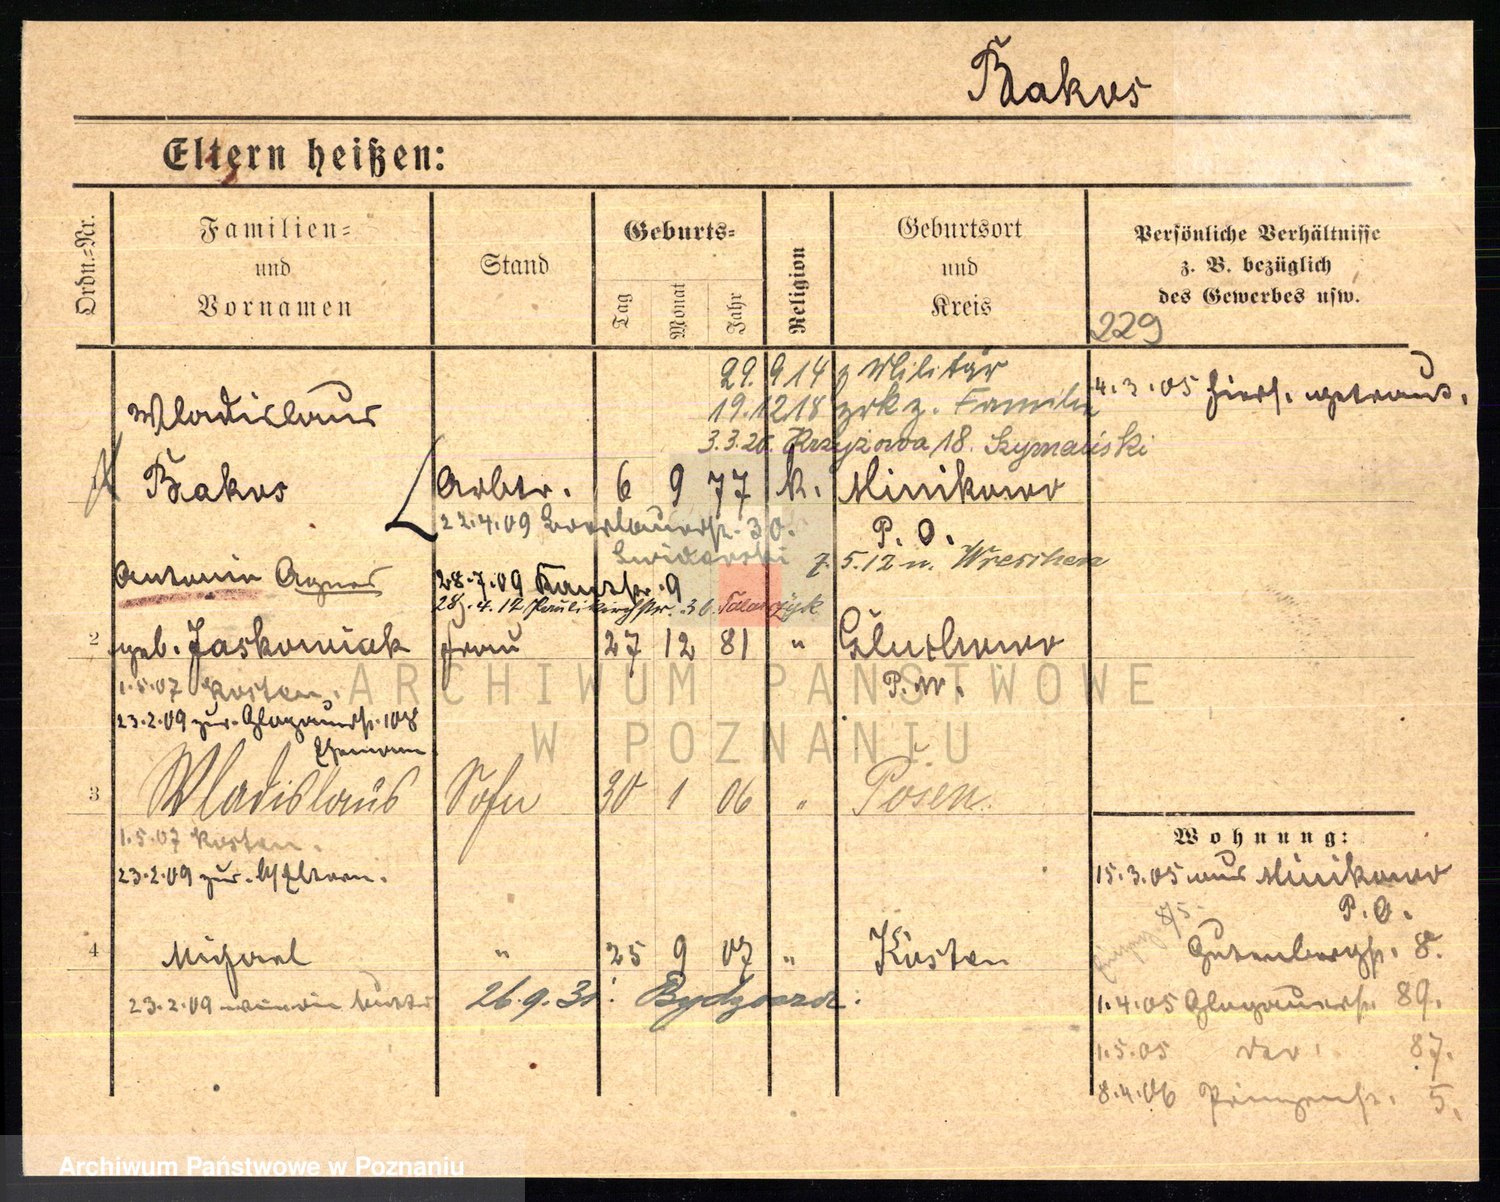 Bakos
Eltern heißen:
Ordn.-Nr.
Familien- und Vornamen
Stand
Geburts-
Tag
Monat
Jahr
Religion
Geburtsort und Kreis
Persönliche Verhältnisse z. B. bezüglich des Gewerbes usw.
229
29.9 14 z Militär
19.12 18 zrk z. Familie
3.3.20. Krzyżowa 18. Szymański
4.3.05 hiers. getraut.
Wladislaus
Bakos Arbtr. 6 9 77 k. Minikowo
P. O.
22.4.09 Breslauerstr. 30.
Swiderski
7.5.12 n. Wreschen
Antonin Agnes
28.7.09 Kanstr. 9
28.4.12 Paulikirchstr. 36. Talarczyk
2 geb. Jaskowiak Frau 27 12 81 " Gluchowo
P. W.
1.5.07 Kosten.
23.2.09 zur. Glogauerstr. 108
Ehemann
3 Wladislaus Sohn 30 1 06 " Posen
1.5.07 Kosten.
23.2.09 zur. Eltern.
4 Michael " 25 9 07 " Kosten
23.2.09
26.9.30: Bydgoszcz.
Wohnung:
15.3.05 aus Minikowo
P. O.
Gutenbergstr. 8.
1.4.05 Glogauerstr. 89.
1.5.05 der. 87.
8.4.06 Prinzenstr. 5.
ARCHIWUM PAŃSTWOWE
W POZNANIU
Archiwum Państwowe w Poznaniu